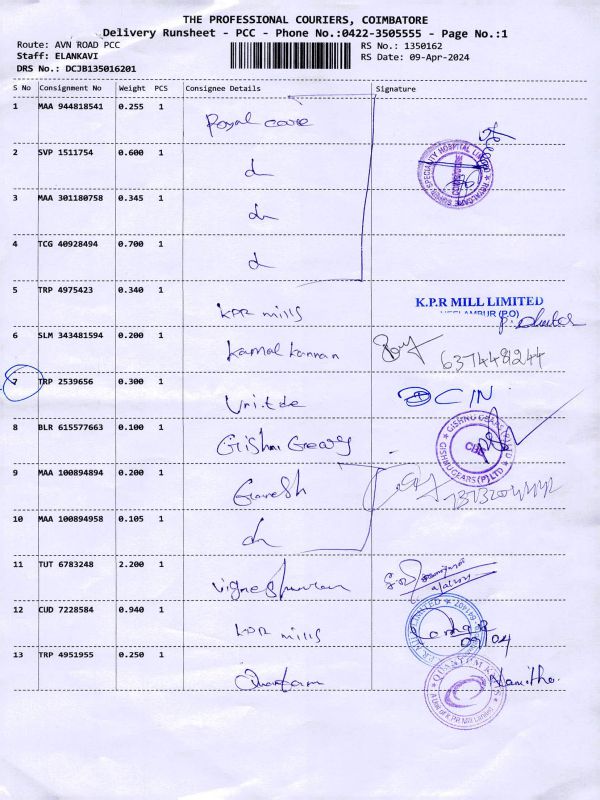 THE PROFESSIONAL COURIERS, COIMBATORE
Delivery Runsheet - PCC - Phone No.:0422-3505555 - Page No.:1
Route: AVN ROAD PCC
RS No.: 1350162
Staff: ELANKAVI
RS Date: 09-Apr-2024
DRS No.: DCJB135016201
S No Consignment No Weight PCS Consignee Details Signature
1 MAA 944818541 0.255 1 Royal care
2 SVP 1511754 0.600 1
3 MAA 301180758 0.345 1
4 TCG 40928494 0.700 1
5 TRP 4975423 0.340 1 KPR mills K.P.R MILL LIMITED
NEELAMBUR (P.O)
6 SLM 343481594 0.200 1 Kamal Kannan
7 TRP 2539656 0.300 1
8 BLR 615577663 0.100 1 GISHNU GEARS (P) LTD
9 MAA 100894894 0.200 1 Ganesh
10 MAA 100894958 0.105 1
11 TUT 6783248 2.200 1
12 CUD 7228584 0.940 1 KPR mills
09/04
13 TRP 4951955 0.250 1 QUANTUM KNITS
A Unit of K.P.R Mill Limited